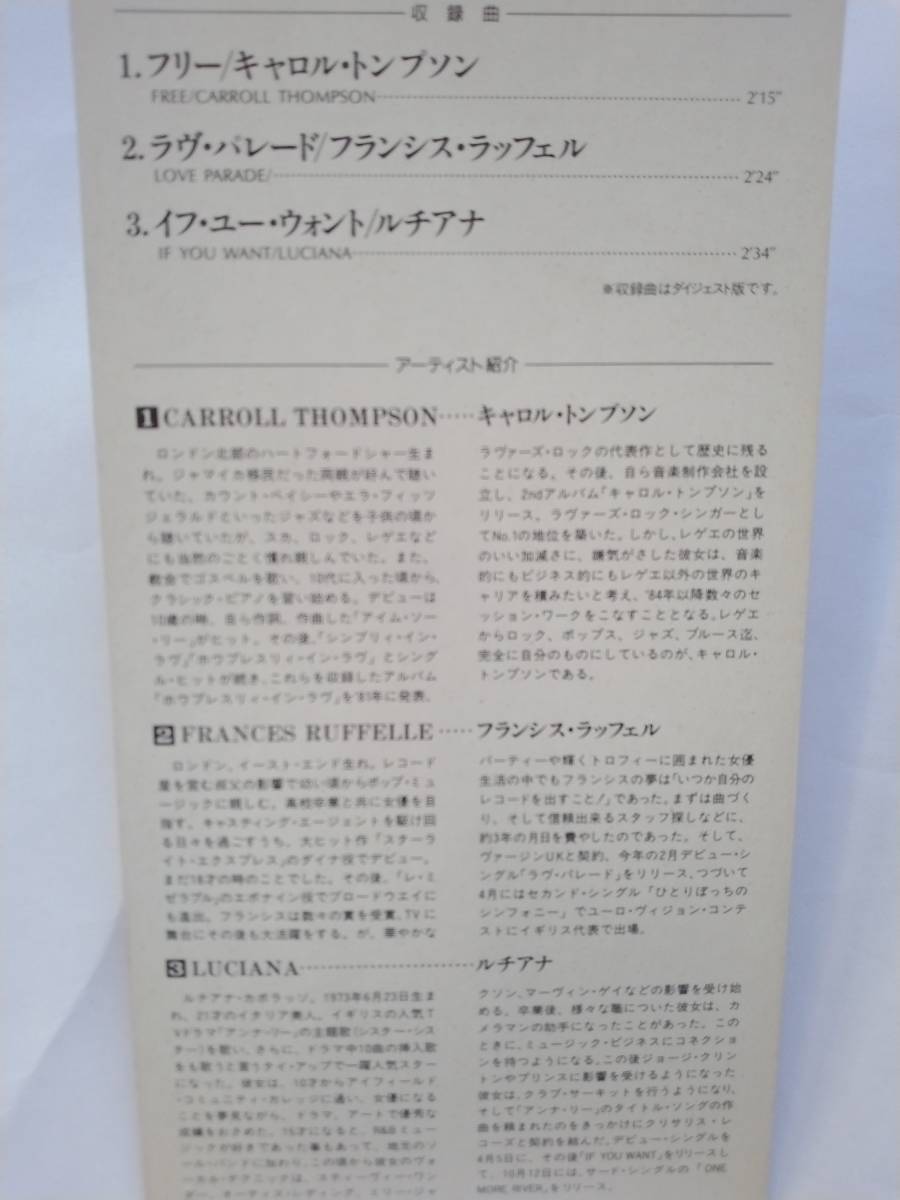 収録曲
1.フリー/キャロル・トンプソン
FREE/CARROLL THOMPSON 2'15"
2.ラヴ・パレード/フランシス・ラッフェル
LOVE PARADE/ 2'24"
3.イフ・ユー・ウォント/ルチアナ
IF YOU WANT/LUCIANA 2'34"
※収録曲はダイジェスト版です。
アーティスト紹介
1 CARROLL THOMPSON・・・・・キャロル・トンプソン
ロンドン北部のハートフォードシャー生ま
れ。ジャマイカ移民だった両親が好んで聴い
ていた、カウント・ベイシーやエラ・フィッツ
ジェラルドといったジャズなどを子供の頃か
ら聴いていたが、スカ、ロック、レゲエなど
にも当然のごとく慣れ親しんでいた。また、
教会でゴスペルを歌い、10代に入った頃から、
クラシック・ピアノを習い始める。デビューは
の時、自ら作詞、作曲した「アイム・ソー
・リー」がヒット。その後、「シンプリィ・イン・
ラヴ」「ホウプレスリィ・イン・ラヴ」とシング
ル・ヒットが続き、これらを収録したアルバム
「ホウプレスリィ・イン・ラヴ」を'81年に発表。
ラヴァーズ・ロックの代表作として歴史に残る
ことになる。その後、自ら音楽制作会社を設
立し、2ndアルバム「キャロル・トンプソン」を
リリース。ラヴァーズ・ロック・シンガーとし
てNo.1の地位を築いた。しかし、レゲエの世界
のいい加減さに、嫌気がさした彼女は、音楽
的にもビジネス的にもレゲエ以外の世界のキ
ャリアを積みたいと考え、'84年以降数々のセ
ッション・ワークをこなすこととなる。レゲエ
からロック、ポップス、ジャズ、ブルース迄、
完全に自分のものにしているのが、キャロル・
トンプソンである。
2 FRANCES RUFFELLE・・・・・フランシス・ラッフェル
ロンドン、イースト・エンド生れ。レコード
屋を営む叔父の影響で幼い頃からポップ・ミュ
ージックに親しむ。高校卒業と共に女優を目
指す。キャスティング・エージェントを駆け回
る日々を過ごすうち、大ヒット作「スターラ
イト・エクスプレス」のダイナ役でデビュー。
まだ18才の時のことでした。その後、「レ・ミ
ゼラブル」のエポナイン役でブロードウエイに
も進出。フランシスは数々の賞を受賞、TVに
舞台にその後も大活躍をする。が、華やかな
パーティーや輝くトロフィーに囲まれた女優
生活の中でもフランシスの夢は「いつか自分の
レコードを出すこと!」であった。まずは曲づく
り、そして信頼出来るスタッフ探しなどに、
約3年の月日を費やしたのであった。そして、
ヴァージンUKと契約、今年の2月デビュー・シ
ングル「ラヴ・パレード」をリリース、つづいて
4月にはセカンド・シングル「ひとりぼっちの
シンフォニー」でユーロ・ヴィジョン・コンテ
ストにイギリス代表で出場。
3 LUCIANA・・・・・ルチアナ
ルチアナ・カポラッソ。1973年6月23日生ま
れ、21才のイタリア美人。イギリスの人気T
Vドラマ「アンナ・リー」の主題歌(シスター・シス
ター)を歌い、さらに、ドラマ中10曲の挿入歌
をも歌うと言うタイ・アップで一躍人気スター
になった。彼女は、10才からアイフィールド
・コミュニティ・カレッジに通い、女優になる
ことを夢見ながら、ドラマ、アートで優秀な
成績をおさめた。15才になると、R&Bミュー
ジックが好きであった事もあって、地元のソ
ール・バンドに加わり、この頃から彼女のヴォ
ーカル・テクニックは、スティーヴィー・ワン
ダー、オーティス・レディング、ミリー・ジャ
クソン、マーヴィン・ゲイなどの影響を受け始
める。卒業後、様々な職についた彼女は、カ
メラマンの助手になったことがあった。この
ときに、ミュージック・ビジネスにコネクショ
ンを持つようになる。この後ジョージ・クリン
トンやプリンスに影響を受けるようになった
彼女は、クラブ・サーキットを行うようになり、
そして「アンナ・リー」のタイトル・ソングの作
曲を頼まれたのをきっかけにクリサリス・レ
コーズと契約を結んだ。デビュー・シングルを
4月5日に、その後「IF YOU WANT」をリリースし
て、10月12日には、サード・シングルの「ONE
MORE RIVER」をリリース。